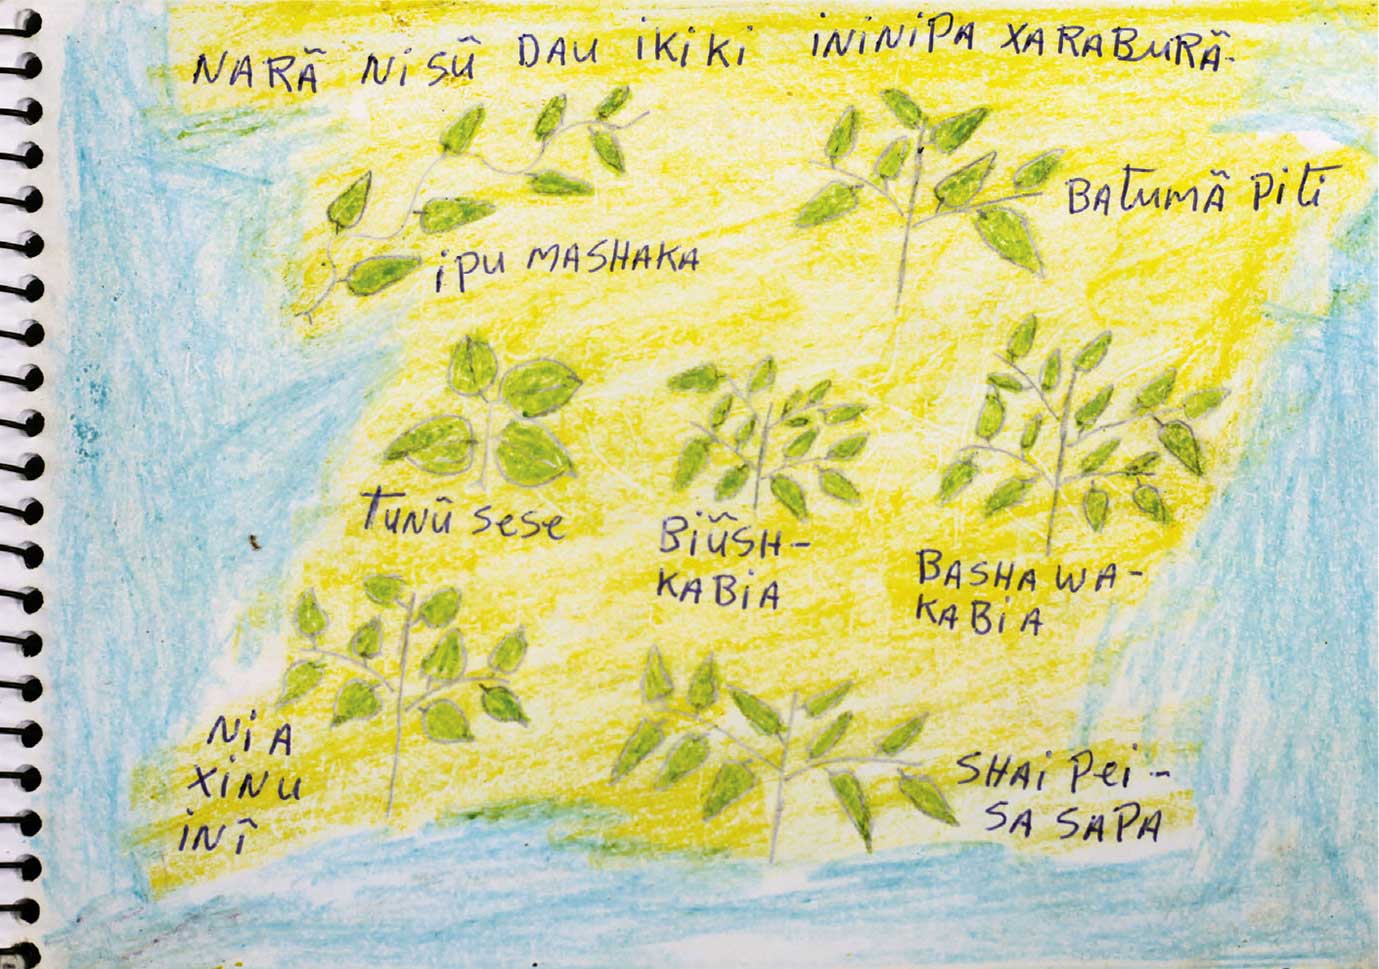 NARÃ NISŨ DAU IKIKI ININIPA XARABURÃ.
IPU MASHAKA
BATUMÃ PITI
TUNŨ SESE
BIŨSH-
KABIA
BASHA WA-
KABIA
NIA
XINU
INĨ
SHAI PEI-
SA SAPA